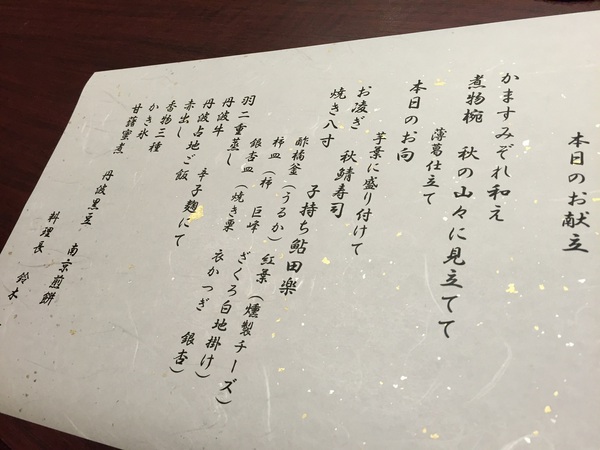 本日のお献立
かますみぞれ和え
煮物椀 秋の山々に見立てて
薄葛仕立て
本日のお向
芋葉に盛り付けて
お凌ぎ 秋鯖寿司
焼き八寸 子持ち鮎田楽
酢橘釜（うるか） 紅葉（燻製チーズ）
柿皿（柿 巨峰 ざくろ白地掛け）
銀杏皿（焼き栗 衣かつぎ 銀杏）
羽二重蒸し
丹波牛 辛子麹にて
丹波占地ご飯
赤出し
香物三種
かき氷
甘藷蜜煮 丹波黒豆 南京煎餅
料理長 鈴木